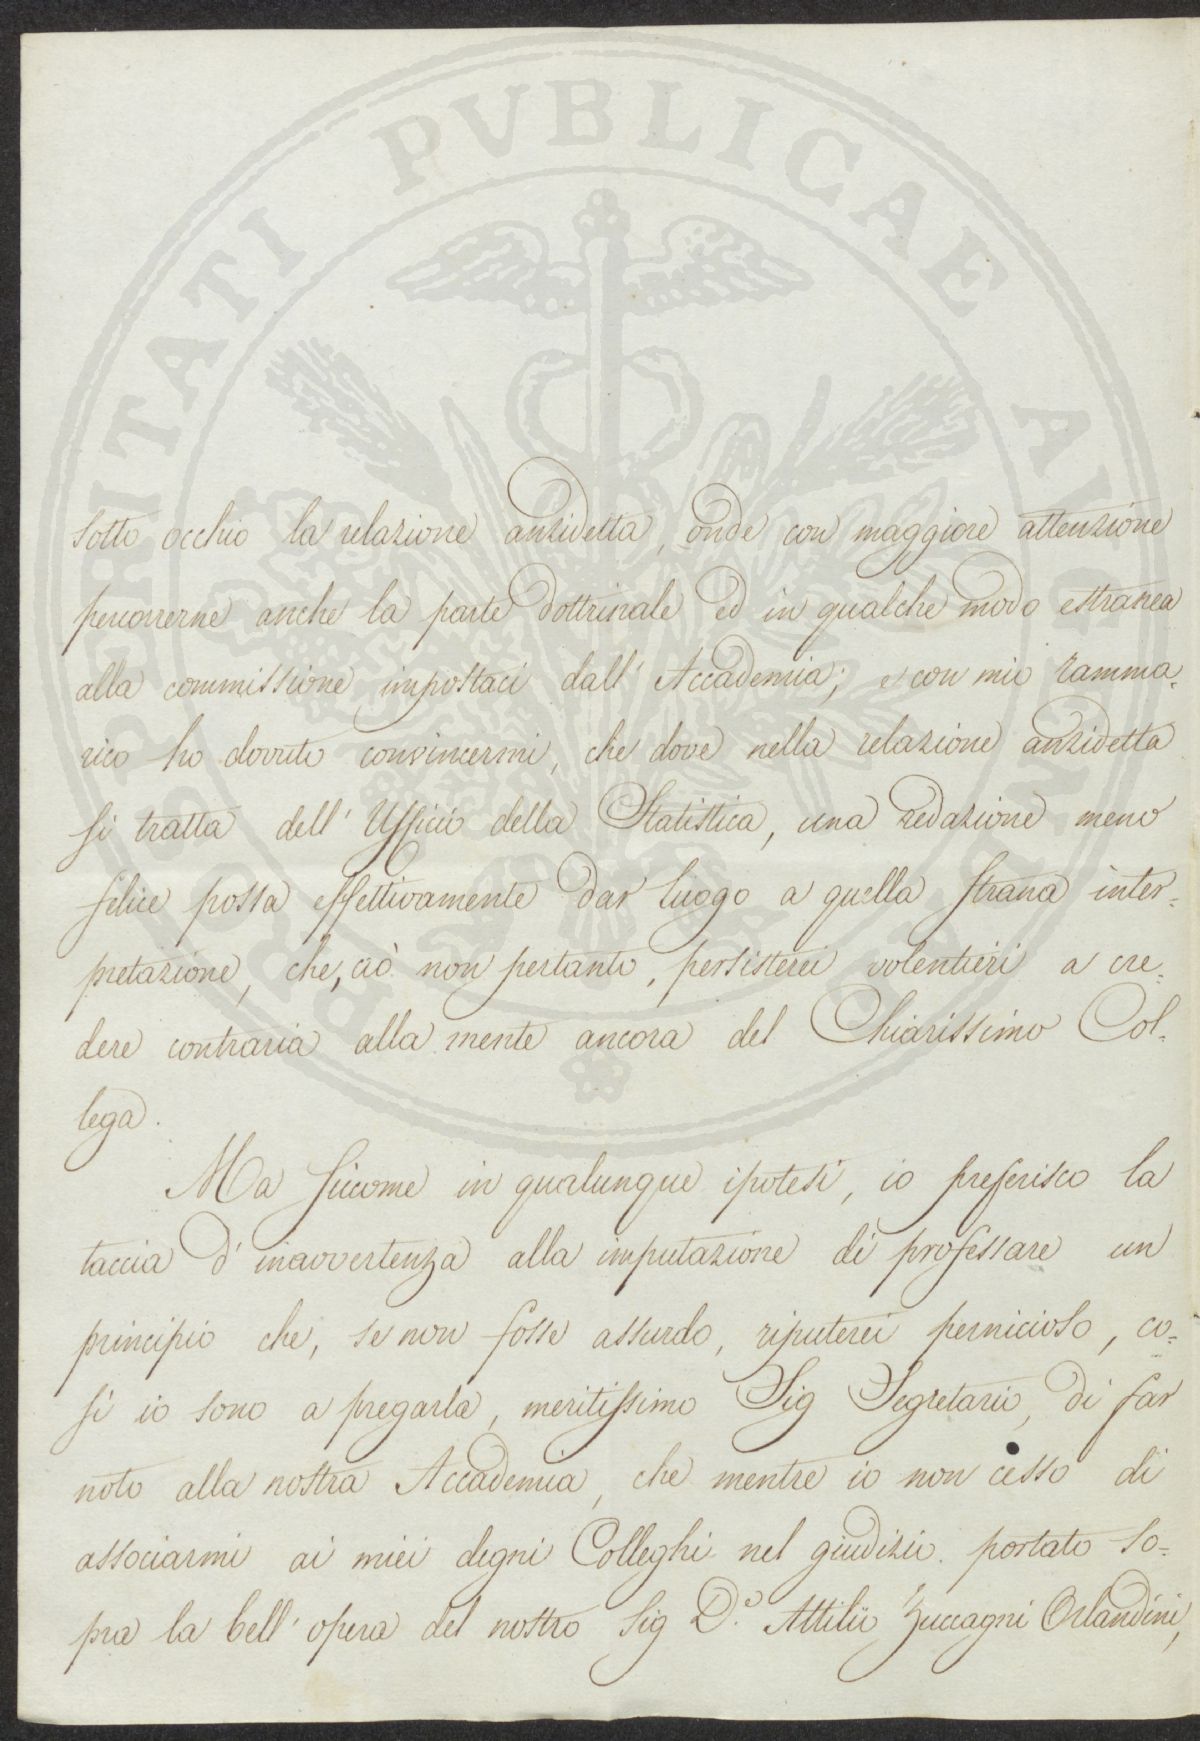 PROSPERITATI PVBLICAE AVGENDAE
sotto occhio la relazione anzidetta, onde con maggiore attenzione
percorrerne anche la parte dottrinale ed in qualche modo estranea
alla commissione impostaci dall' Accademia; e con mio ramma=
rico ho dovuto convincermi, che dove nella relazione anzidetta
si tratta dell' Ufficio della Statistica, una redazione meno
felice possa effettivamente dar luogo a quella strana inter=
pretazione, che, ciò non pertanto, persisterei volentieri a cre=
dere contraria alla mente ancora del Chiarissimo Col=
lega.
Ma siccome in qualunque ipotesi, io preferisco la
taccia d' inavvertenza alla imputazione di professare un
principio che, se non fosse assurdo, riputerei pernicioso, co=
si io sono a pregarla, meritissimo Sig Segretario, di far
noto alla nostra Accademia, che mentre io non cesso di
associarmi ai miei degni Colleghi nel giudizio portato so=
pra la bell' opera del nostro Sig D.e Attilio Zuccagni Orlandini,